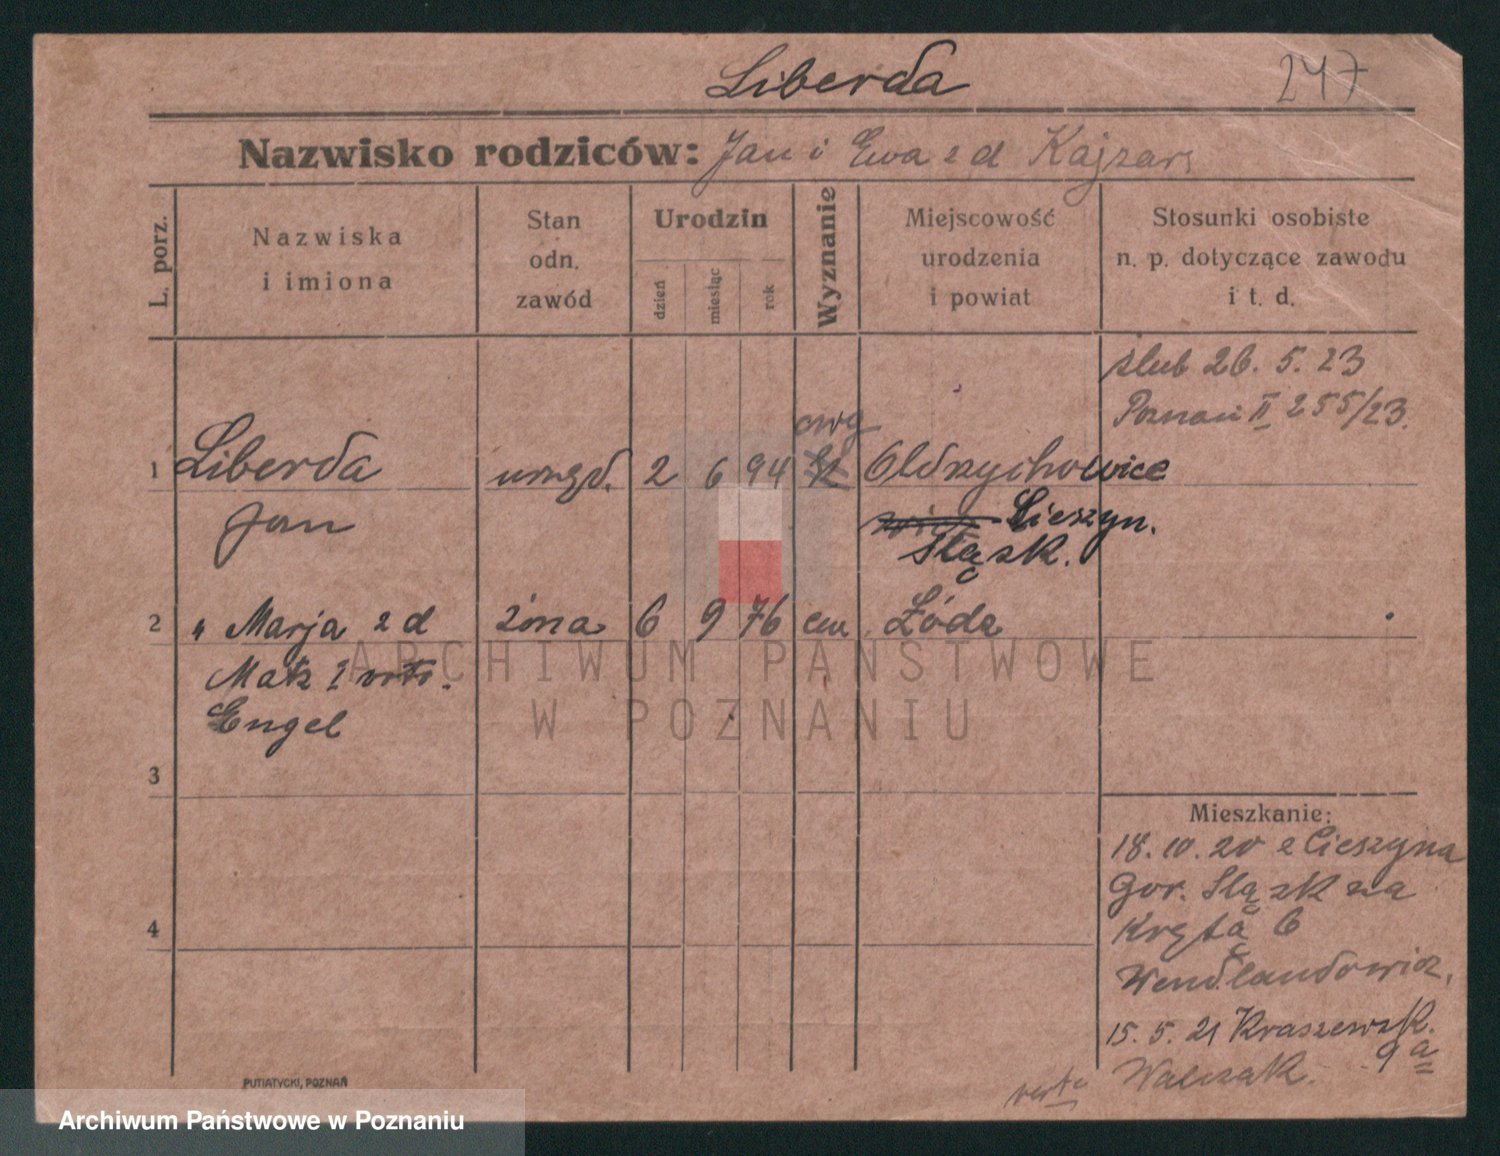 Liberda
247
Nazwisko rodziców: Jan i Ewa z d Kajzar
L. porz.
Nazwiska
i imiona
Stan
odn.
zawód
Urodzin
dzień
miesiąc
rok
Wyznanie
Miejscowość
urodzenia
i powiat
Stosunki osobiste
n. p. dotyczące zawodu
i t. d.
ślub 26. 5. 23
Poznań II 255/23.
ewg
1 Liberda urzęd. 2 6 94 Oldrzychowice
Jan Cieszyn.
Śląsk.
2 " Marja z d żona 6 9 76 ew Łódz
Matz I voto.
Engel
3
4
Mieszkanie:
18. 10. 20 z Cieszyna
Gor. Śląsk za
Krętą 6
Wendlandowicz.
15. 5. 21 Kraszewsk.
9a
Walczak.
verte
PUTIATYCKI, POZNAŃ
ARCHIWUM PAŃSTWOWE
W POZNANIU
Archiwum Państwowe w Poznaniu